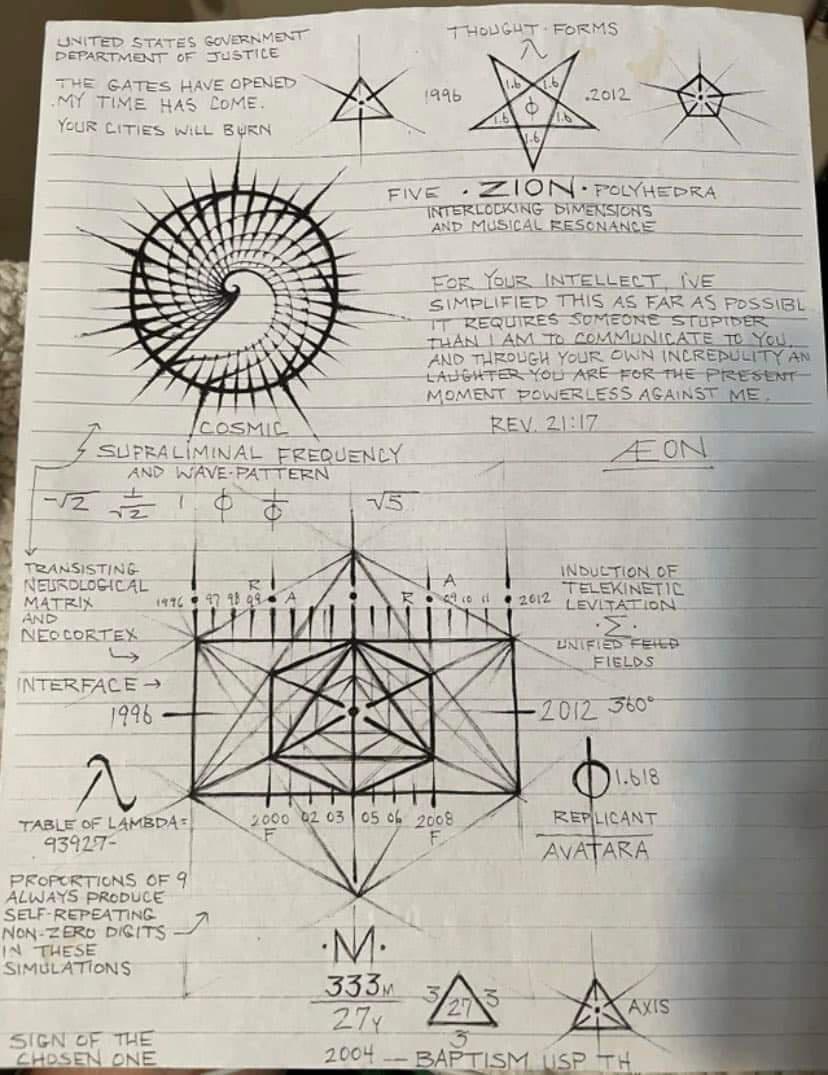 UNITED STATES GOVERNMENT
DEPARTMENT OF JUSTICE
THE GATES HAVE OPENED
MY TIME HAS COME.
YOUR CITIES WILL BURN
THOUGHT · FORMS
λ
1996
1.6 1.6
1.6 ϕ 1.6
1.6
.2012
FIVE · ZION · POLYHEDRA
INTERLOCKING DIMENSIONS
AND MUSICAL RESONANCE
FOR YOUR INTELLECT, I'VE
SIMPLIFIED THIS AS FAR AS POSSIBL
IT REQUIRES SOMEONE STUPIDER
THAN I AM TO COMMUNICATE TO YOU,
AND THROUGH YOUR OWN INCREDULITY AN
LAUGHTER YOU ARE FOR THE PRESENT
MOMENT POWERLESS AGAINST ME.
REV. 21:17
ÆON
COSMIC
SUPRALIMINAL FREQUENCY
AND WAVE-PATTERN
-√2 1/√2 1 ϕ 1/ϕ √5
TRANSISTING
NEUROLOGICAL
MATRIX
AND
NEOCORTEX
INTERFACE →
R A
1996 97 98 99 A R 09 10 11 2012
INDUCTION OF
TELEKINETIC
LEVITATION
·Σ·
UNIFIED FEILD
FIELDS
1996
2012 360°
λ
TABLE OF LAMBDA=
93927-
2000 02 03 05 06 2008
F F
ϕ 1.618
REPLICANT
AVATARA
PROPORTIONS OF 9
ALWAYS PRODUCE
SELF-REPEATING
NON-ZERO DIGITS
IN THESE
SIMULATIONS
·M·
333M
27Y
3 27 3
3
AXIS
SIGN OF THE
CHOSEN ONE
2004 -- BAPTISM USP TH